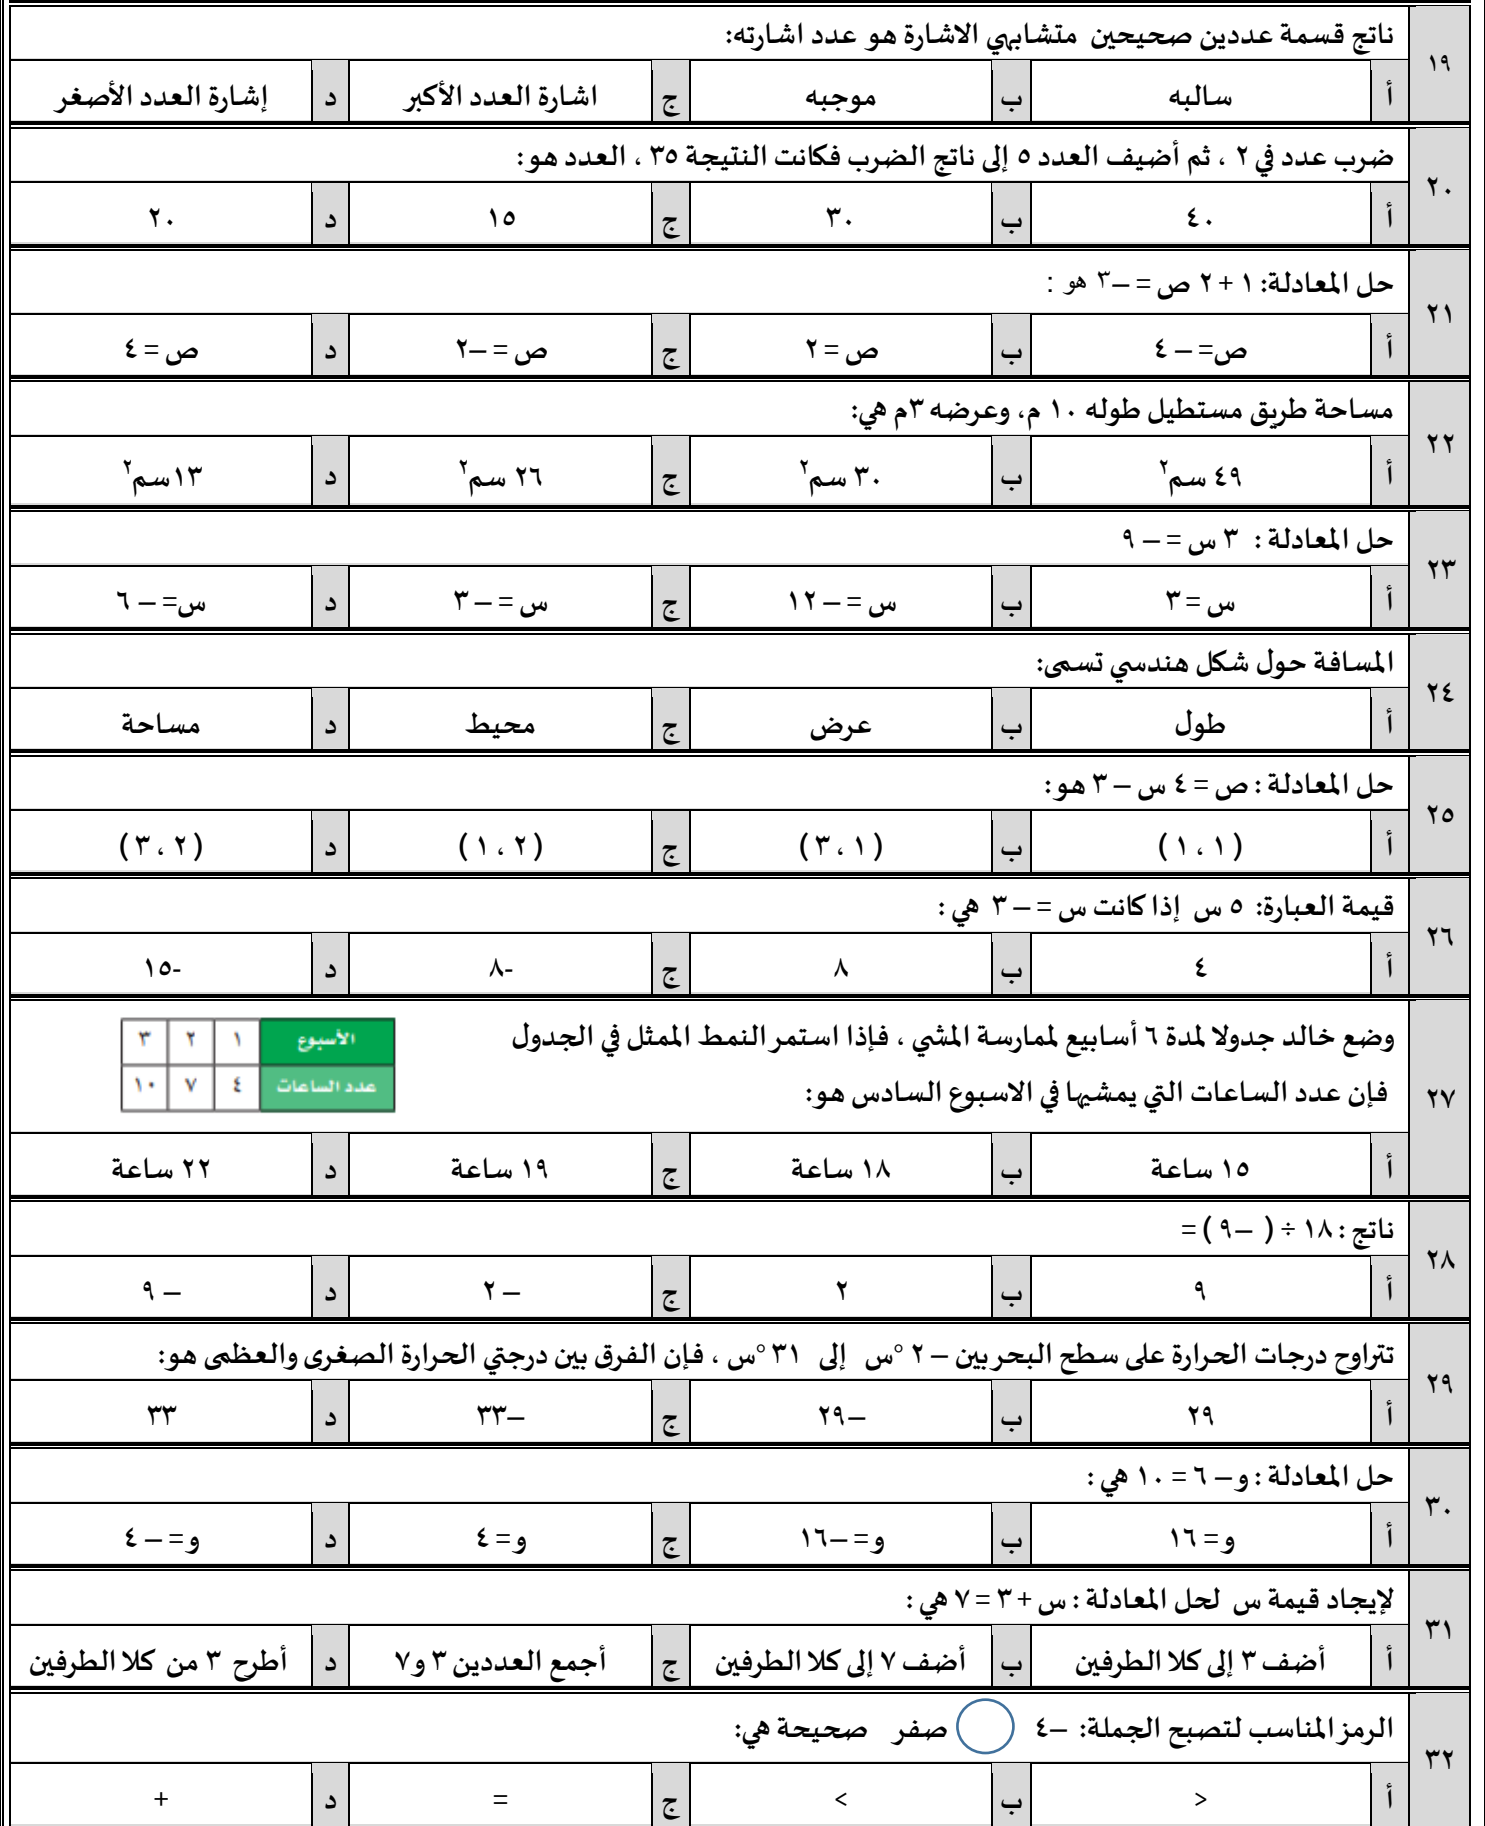 ١٩
ناتج قسمة عددين صحيحين متشابهي الاشارة هو عدد اشارته:
أ سالبه ب موجبه ج اشارة العدد الأكبر د إشارة العدد الأصغر
٢٠
ضرب عدد في ٢ ، ثم أضيف العدد ٥ إلى ناتج الضرب فكانت النتيجة ٣٥ ، العدد هو:
أ ٤٠ ب ٣٠ ج ١٥ د ٢٠
٢١
حل المعادلة: ١ + ٢ ص = –٣ هو :
أ ص= – ٤ ب ص = ٢ ج ص = –٢ د ص = ٤
٢٢
مساحة طريق مستطيل طوله ١٠ م، وعرضه ٣م هي:
أ ٤٩ سم٢ ب ٣٠ سم٢ ج ٢٦ سم٢ د ١٣سم٢
٢٣
حل المعادلة : ٣ س = – ٩
أ س = ٣ ب س = – ١٢ ج س = – ٣ د س= – ٦
٢٤
المسافة حول شكل هندسي تسمى:
أ طول ب عرض ج محيط د مساحة
٢٥
حل المعادلة : ص = ٤ س – ٣ هو:
أ ( ١ ، ١ ) ب ( ١ ، ٣ ) ج ( ٢ ، ١ ) د ( ٢ ، ٣ )
٢٦
قيمة العبارة: ٥ س إذا كانت س = – ٣ هي :
أ ٤ ب ٨ ج -٨ د -١٥
٢٧
وضع خالد جدولا لمدة ٦ أسابيع لممارسة المشي ، فإذا استمر النمط الممثل في الجدول
فإن عدد الساعات التي يمشيها في الاسبوع السادس هو:
الأسبوع ١ ٢ ٣
عدد الساعات ٤ ٧ ١٠
أ ١٥ ساعة ب ١٨ ساعة ج ١٩ ساعة د ٢٢ ساعة
٢٨
ناتج : ١٨ ÷ ( –٩ ) =
أ ٩ ب ٢ ج – ٢ د – ٩
٢٩
تتراوح درجات الحرارة على سطح البحر بين – ٢ °س إلى ٣١ °س ، فإن الفرق بين درجتي الحرارة الصغرى والعظمى هو:
أ ٢٩ ب –٢٩ ج –٣٣ د ٣٣
٣٠
حل المعادلة : و – ٦ = ١٠ هي :
أ و = ١٦ ب و = –١٦ ج و = ٤ د و = – ٤
٣١
لإيجاد قيمة س لحل المعادلة : س + ٣ = ٧ هي :
أ أضف ٣ إلى كلا الطرفين ب أضف ٧ إلى كلا الطرفين ج أجمع العددين ٣ و٧ د أطرح ٣ من كلا الطرفين
٣٢
الرمز المناسب لتصبح الجملة: –٤ صفر صحيحة هي:
أ > ب < ج = د +